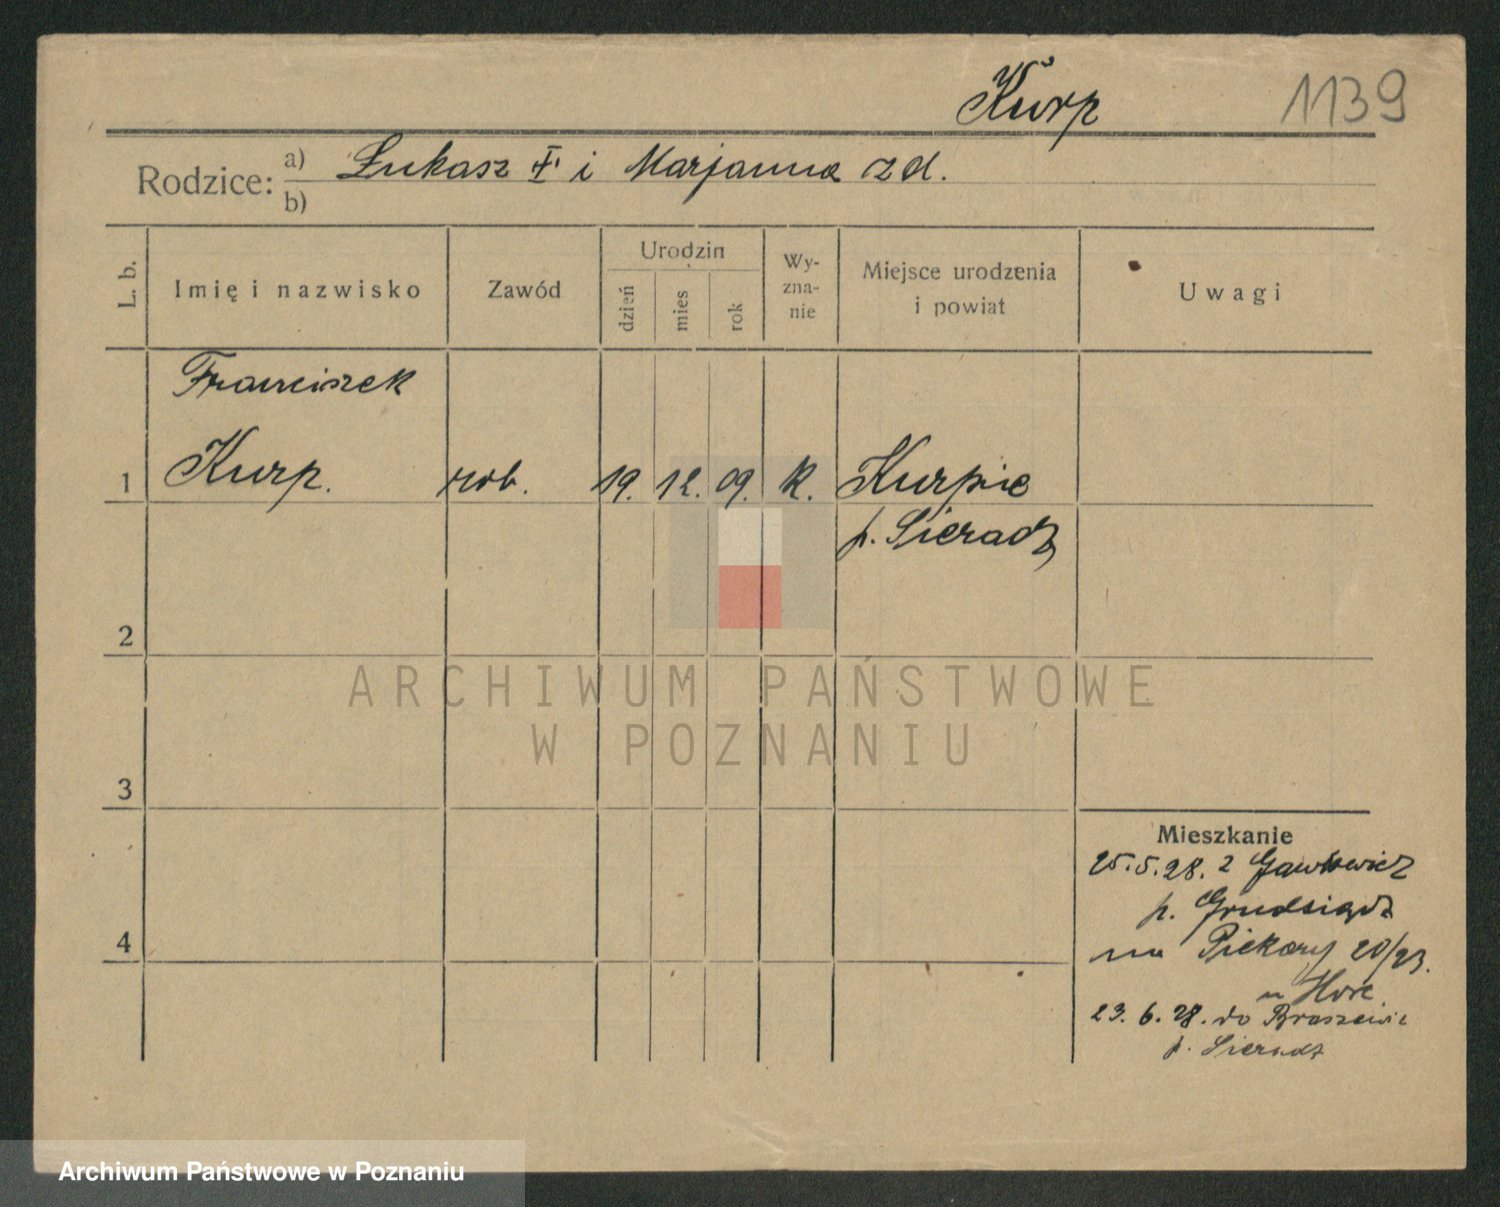 Kurp 1139
Rodzice: a) Łukasz † i Marjanna zd.
b)
L. b. Imię i nazwisko Zawód Urodzin dzień mies rok Wy-zna-nie Miejsce urodzenia i powiat Uwagi
Franciszek
1 Kurp. rob. 19. 12. 09. k. Kurpie
p. Sieradz
2
ARCHIWUM PAŃSTWOWE
W POZNANIU
3
Mieszkanie
25.5.28. z
p. Grudziądz
4
na Piekary 20/23.
u
23. 6. 28. do
p. Sieradz
Archiwum Państwowe w Poznaniu